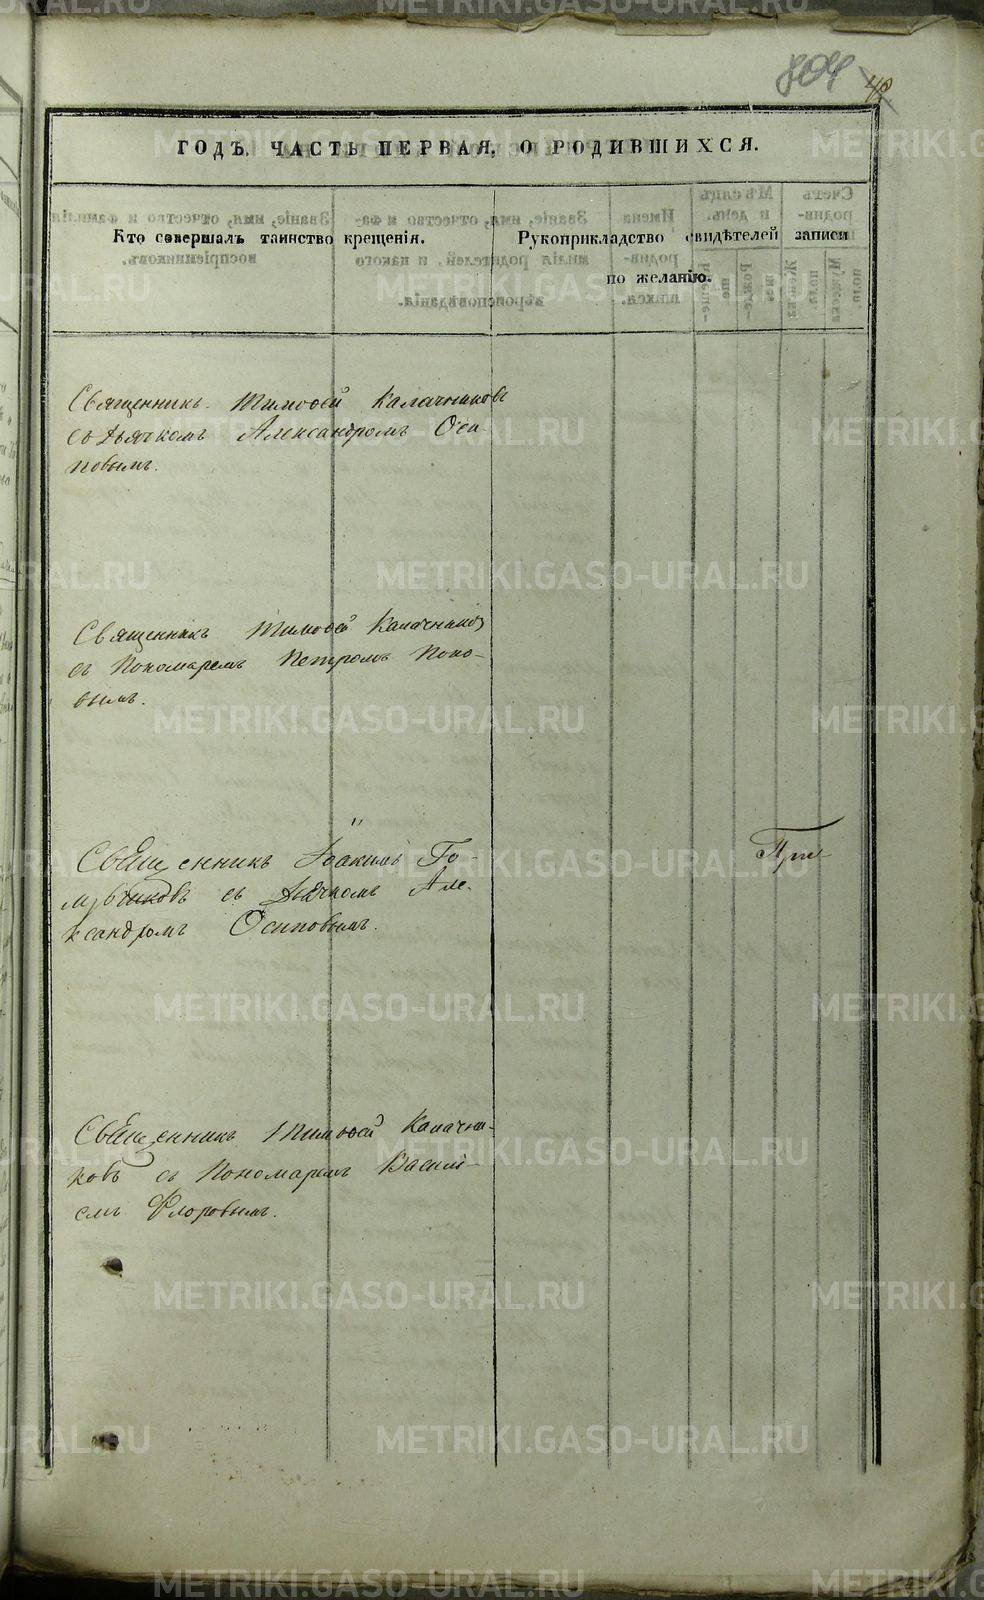 ГОДЪ. ЧАСТЬ ПЕРВАЯ, О РОДИВШИХСЯ.
Кто совершалъ таинство крещенія.
Рукоприкладство свидѣтелей записи
по желанію.
Священникъ Тимоѳей Калачниковъ
съ Дьячкомъ Александромъ Оси-
повымъ.
Священникъ Тимоѳей Калачниковъ
съ Пономаремъ Петромъ Попо-
вымъ.
Священникъ Іоакимъ Го-
съ Дьячкомъ Але-
ксандромъ Осиповымъ.
Священникъ Тимоѳей Калачни-
ковъ съ Пономаремъ Васильі-
емъ Флоровымъ.
METRIKI.GASO-URAL.RU